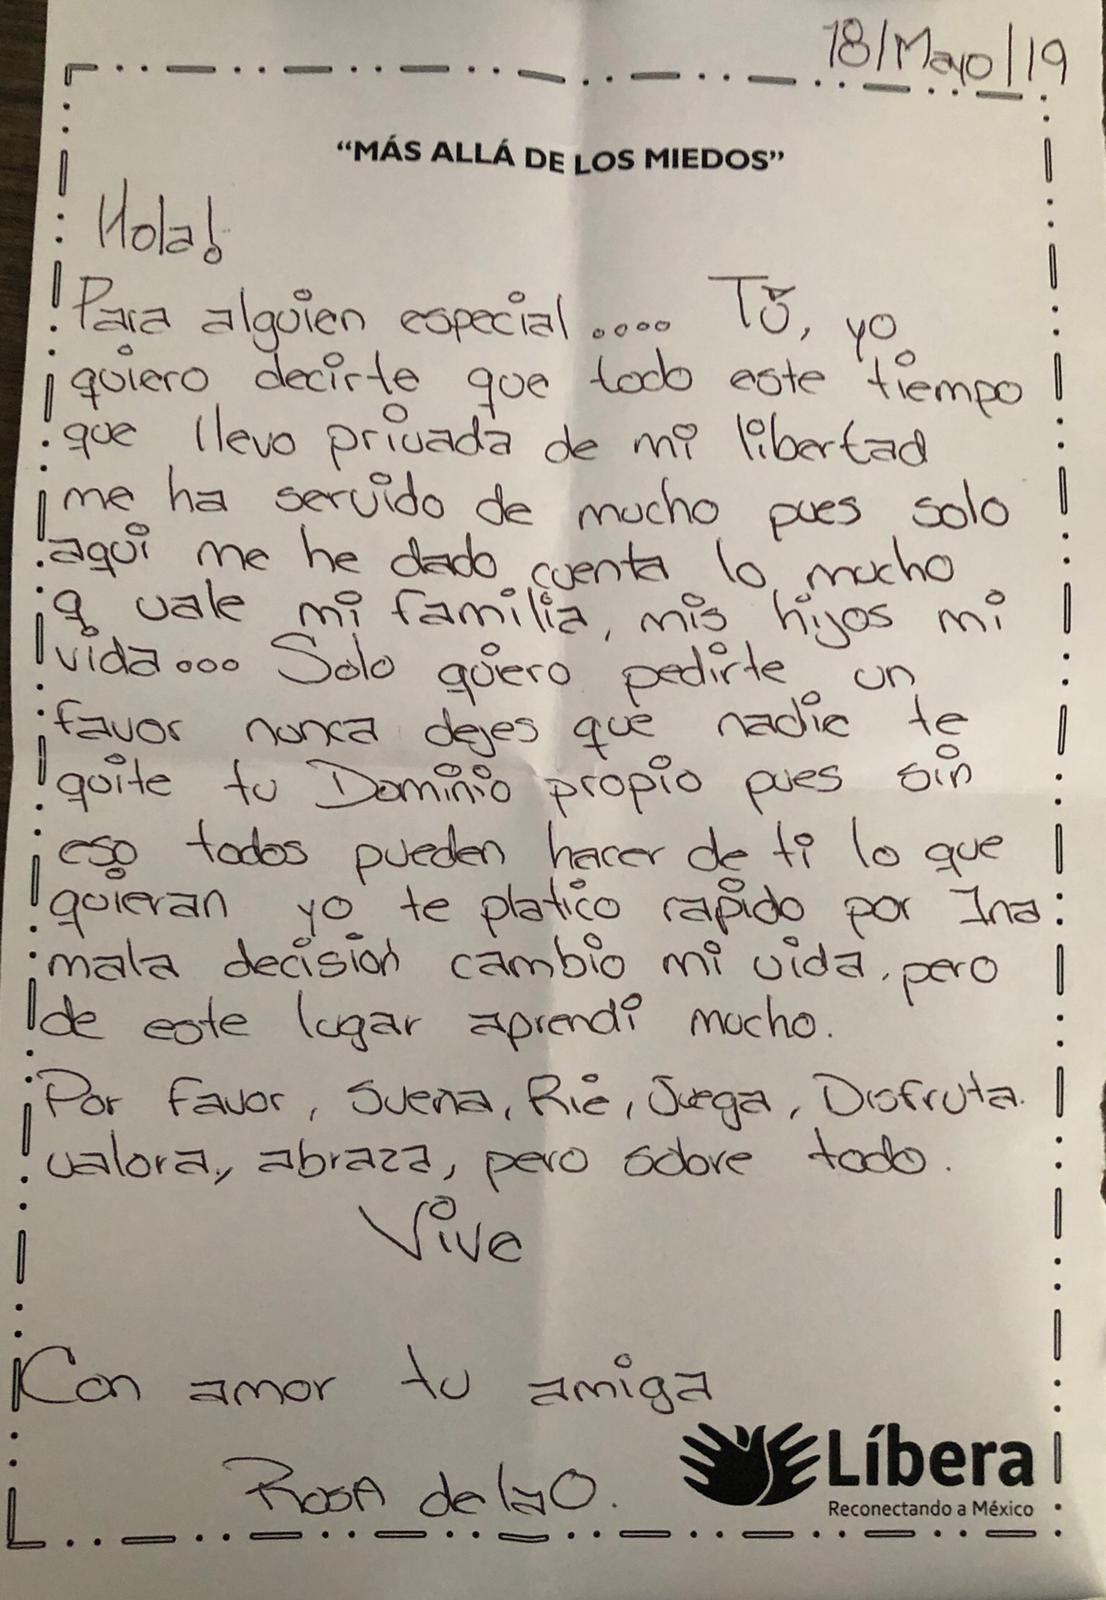 18/Mayo/19
“MÁS ALLÁ DE LOS MIEDOS”
Hola!
Para alguien especial.... Tú, yo
quiero decirte que todo este tiempo
que llevo privada de mi libertad
me ha servido de mucho pues solo
aqui me he dado cuenta lo mucho
q vale mi familia, mis hijos mi
vida... Solo quiero pedirte un
favor nunca dejes que nadie te
quite tu Dominio propio pues sin
eso todos pueden hacer de ti lo que
quieran yo te platico rapido por Ina
mala decisión cambio mi vida, pero
de este lugar aprendi mucho.
Por favor, Suena, Rie, Juega, Disfruta.
valora, abraza, pero sobre todo.
Vive
Con amor tu amiga
Rosa de la O.
Líbera
Reconectando a México